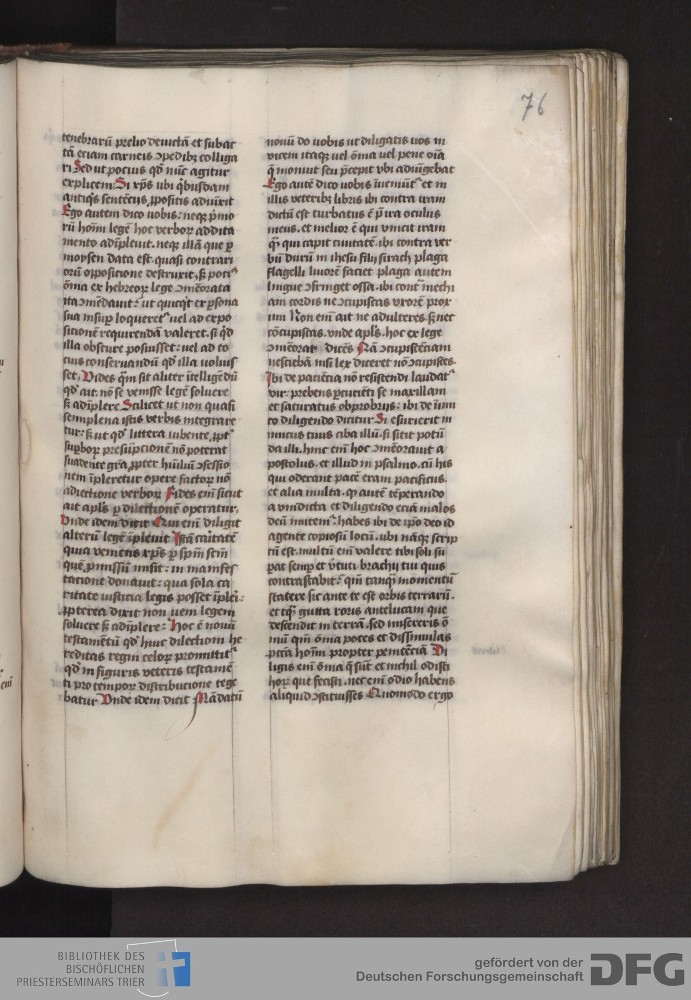 76
tenebrarū prelio deuictā et subac
tā eciam carneis ꝯpedibꝫ colliga
ri Sed ut pocius qd̄ nūc agitur
explicem Si xp̄s ubi q̇busdam
antiq̇s sentēcijs ꝓpositis adiūxit
Ego autem dico uobis: neqꝫ p̄mo
rū hoīm legē hoc verboꝝ addita
mento adīpleuit. neqꝫ illā que ꝑ
moysen data est quasi contrari
orū opposicione destruxit. sꝫ poci᷒
ōnia ex hebreoꝝ lege ꝯmēorata
ita ꝯmēdauit: ut quicqͥt ex ꝑsona
sua insuꝑ loqueret᷑ uel ad expo
sicionē requirendā valeret. si qͥd
illa obscure posuisset: uel ad to
cius conseruandū qd̄ illa uoluis
set. Uides qͣm sit aliter ītelligēdū
qd̄ ait. nō se venisse legē soluere
sꝫ adīplere Scilicet ut non quasi
semiplena istis verbis integrare
tur: sꝫ ut qd̄ littera iubente. ꝓpt᷑
suꝑboꝝ presūpcionē nō poterat
suadente gr̄a. ꝓpter hūiliū ꝯfessio
nem īpleretur opere factoꝝ nō
adiectione verboꝝ Fides em̄ sicut
ait apl̄s ꝑ dilectionē operatur.
Unde idem dicit Qui em̄ diligit
alterū legē īpleuit Istā caritatē
quia veniens xp̄s ꝑ sp̄m sc̄m
quē ꝓmissū misit: in manifes
tacione donauit: qua sola ca
ritate iusticia legis posset īpleri:
ꝓpterea dixit non ueni legem
soluere sꝫ adīplere: Hoc ē nouū
testamētū qd̄ huic dilectioni he
reditas regni celoꝝ promittit᷑
qd̄ in figuris veteris testamē
ti pro tempoꝝ distribucione tege
batur Unde idem dicit Mādatū
nouū do uobis ut diligatis uos in
vicem itaqꝫ uel ōnia uel pene oīa
q̄ monuit seu p̄cepit ubi adiūgebat
Ego autē dico uobis īueniūt᷑ et in
illis veteribꝫ libris ibi contra iram
dictū est turbatus ē p̄ ira oculus
meus. et melior ē qui vincit iram
qͣꝫ qui capit ciuitatē. ibi contra ver
bū durū in ihesu filij sirach plaga
flagelli liuorē faciet plaga autem
lingue ꝯfringet ossa. ibi cont͛ mechi
am cordis ne ꝯcupiscas vxorē prox
imi Non em̄ ait ne adulteres. sꝫ nec
cōcupiscas. vnde apl̄s. hoc ex lege
ꝯmēorat dicēs Nā ꝯcupiscētiam
nesciebā nisi lex diceret nō ꝯcupisces.
Ibi de paciētia nō resistendi laudat᷑
vir. prebens ꝑcucienti se maxillam
et saturatus obprobrijs: ibi de īimi
co diligendo dicitur Si esurierit in
imicus tuus ciba illū. si sitit potū
da illi. hinc em̄ hoc ꝯmēorauit a
postolus. et illud in psalmo. cū his
qui oderant pacē eram pacificus.
et alia multa. qͥ autē tēperando
a vindicta et diligendo eciā malos
deū imitem᷑. habes ibi de ip̄o deo id
agente copiosū locū. ubi nāqꝫ scrip
tū est. multū em̄ valere tibi soli su
ꝑat semꝑ et v̄tuti brachij tui quis
contrastabit: qm̄ tanqͣꝫ momentū
statere sic ante te est orbis terrarū.
et tqͣꝫ gutta roris antelucani que
descendit in terrā. sed misereris o
mniū qm̄ ōnia potes et dissimulas
pctā hoīm propter penitēciā Di
ligis em̄ ōnia q̄ sūt et nichil odisti
hoꝝ que fecisti. nec em̄ odio habens
aliquid ꝯstituisses Quomodo ergo
BIBLIOTHEK DES
BISCHÖFLICHEN
PRIESTERSEMINARS TRIER
gefördert von der
Deutschen Forschungsgemeinschaft
DFG